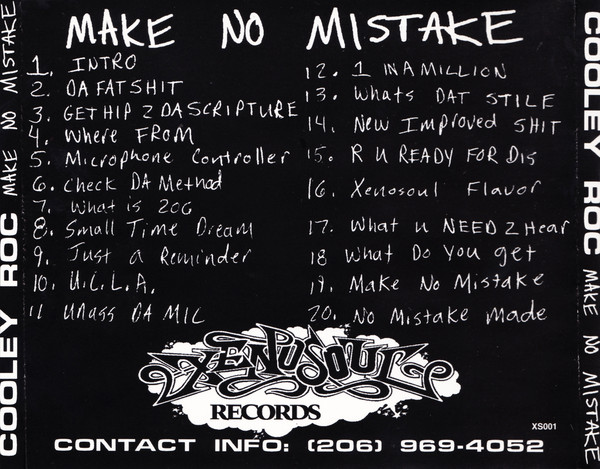 MAKE NO MISTAKE
1. INTRO
2. DA FAT SHIT
3. GET HIP 2 DA SCRIPTURE
4. Where FROM
5. Microphone Controller
6. Check DA Method
7. What is 206
8. Small Time Dream
9. Just a Reminder
10. U.C.L.A.
11 UNASS DA MIC
12. 1 IN A MILLION
13. Whats DAT STILE
14. New Improved SHIT
15. R U READY FOR DIS
16. Xenosoul Flavor
17. What u NEED 2 Hear
18 What Do You get
19. Make No Mistake
20. No Mistake Made
XENOSOUL
RECORDS
XS001
CONTACT INFO: (206) 969-4052
COOLEY ROC MAKE NO MISTAKE
COOLEY ROC MAKE NO MISTAKE